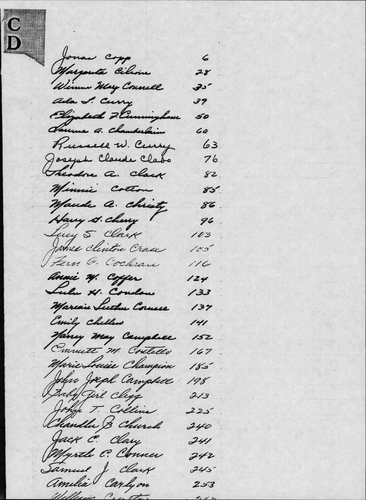 C
D
Jonas Copp 6
Margaret 28
Winnie May Connell 35
Ada L. Curry 39
Elizabeth F Cunningham 50
A. Chamberlain 60
Russell W. Curry 63
Joseph Claude 76
Theodore A. Clark 82
Minnie Cotton 85
Maude A. Christy 86
Harry G. Cherry 96
Lucy S. Clark 103
James Clinton Crase 105
Fern G. Cochran 116
Annie M. Coffer 124
Lulu H. Condon 133
Luther 137
Emily 141
Nancy May Campbell 152
Emmett M. Costello 167
Marie Louise Champion 185
John Joseph Campbell 198
Baby Girl Clegg 213
John T. Collins 225
Chandler B Church 240
Jack C. Clary 241
Myrtle C. Conner 242
Samuel J. Clark 245
Amelia Carlyon 253
William